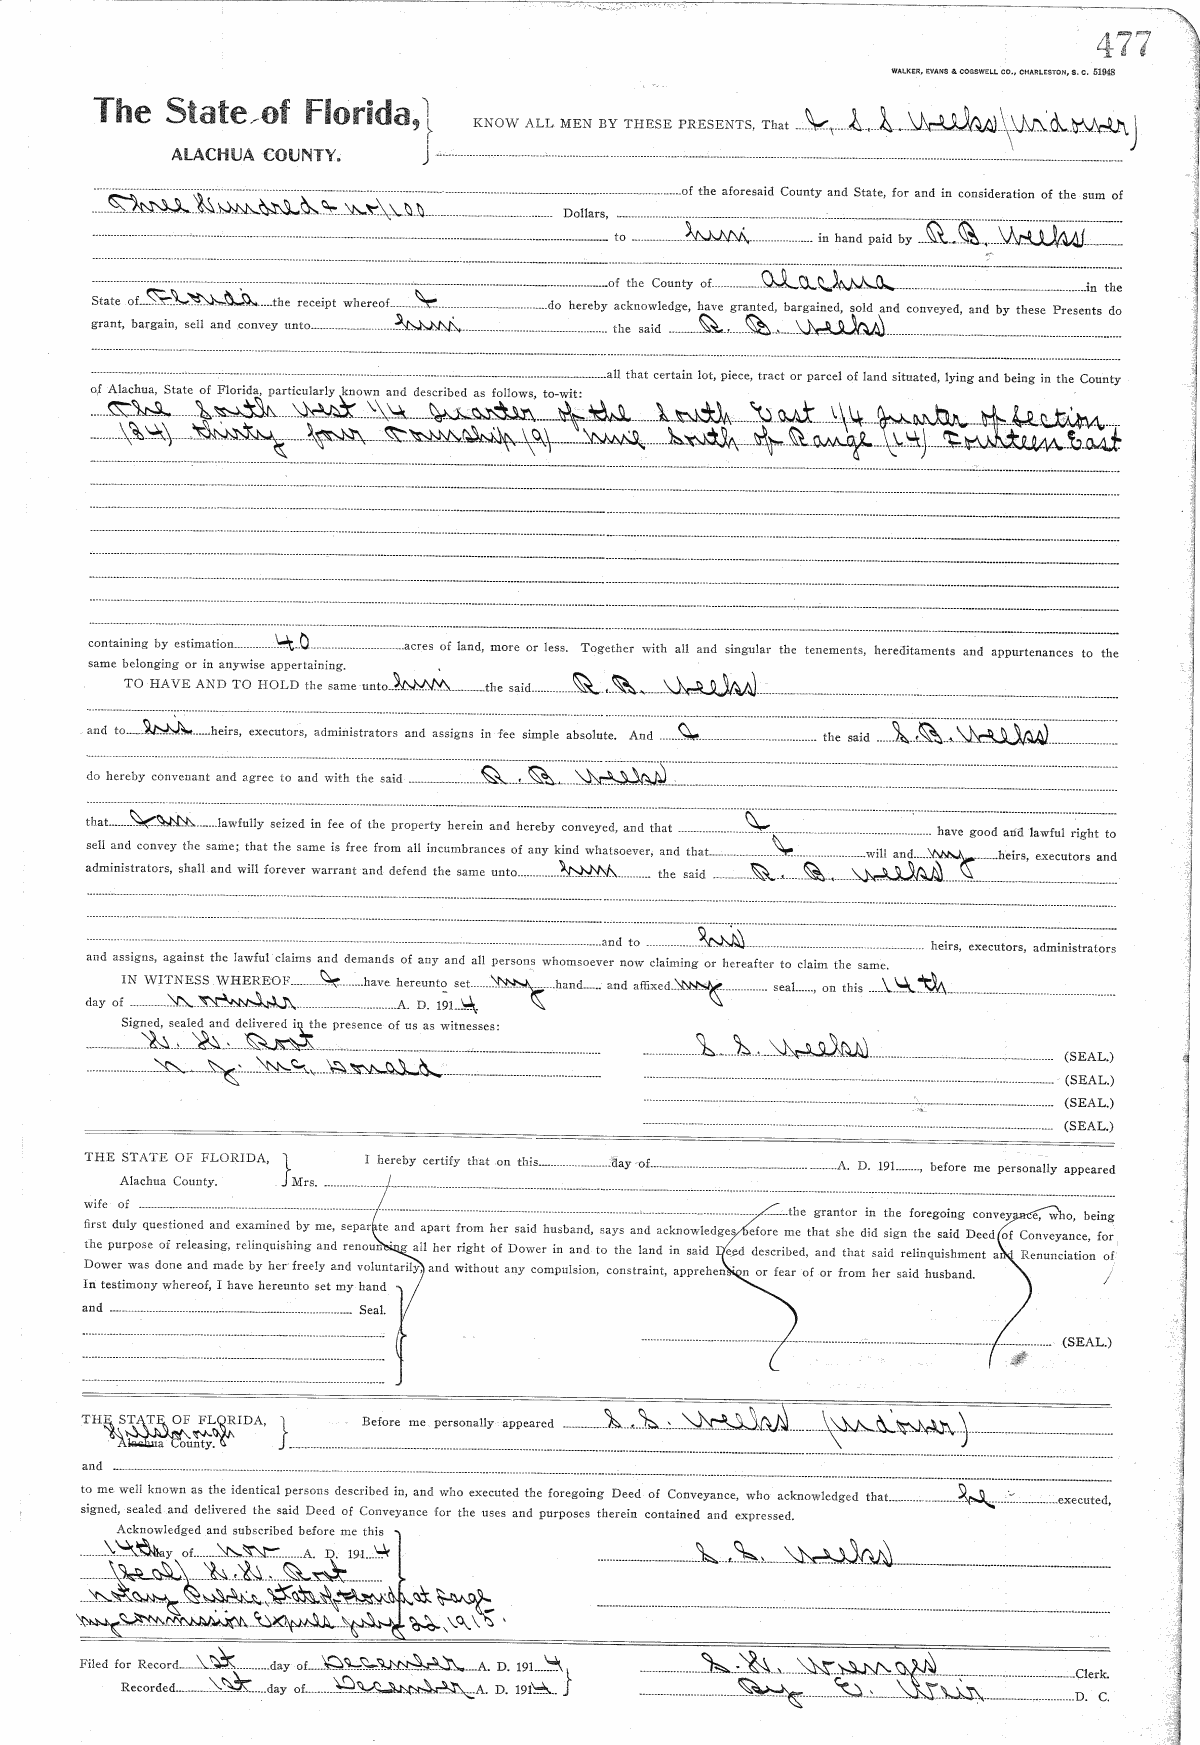 477
WALKER, EVANS & COGSWELL CO., CHARLESTON, S. C. 51948
The State of Florida,
KNOW ALL MEN BY THESE PRESENTS, That I, S. S. Weeks (Widower)
ALACHUA COUNTY.
of the aforesaid County and State, for and in consideration of the sum of
Three Hundred & no/100 Dollars,
to him in hand paid by R. B. Weeks
of the County of Alachua in the
State of Florida the receipt whereof I do hereby acknowledge, have granted, bargained, sold and conveyed, and by these Presents do
grant, bargain, sell and convey unto him the said R. B. Weeks
all that certain lot, piece, tract or parcel of land situated, lying and being in the County
of Alachua, State of Florida, particularly known and described as follows, to-wit:
The South West 1/4 Quarter of the South East 1/4 Quarter of Section
(34) thirty four Township (9) nine South of Range (14) Fourteen East
containing by estimation 40 acres of land, more or less. Together with all and singular the tenements, hereditaments and appurtenances to the
same belonging or in anywise appertaining.
TO HAVE AND TO HOLD the same unto him the said R. B. Weeks
and to his heirs, executors, administrators and assigns in fee simple absolute. And I the said S. B. Weeks
do hereby convenant and agree to and with the said R. B. Weeks
that I am lawfully seized in fee of the property herein and hereby conveyed, and that I have good and lawful right to
sell and convey the same; that the same is free from all incumbrances of any kind whatsoever, and that I will and my heirs, executors and
administrators, shall and will forever warrant and defend the same unto him the said R. B. Weeks
and to his heirs, executors, administrators
and assigns, against the lawful claims and demands of any and all persons whomsoever now claiming or hereafter to claim the same.
IN WITNESS WHEREOF I have hereunto set my hand and affixed my seal, on this 14th
day of November A. D. 1914
Signed, sealed and delivered in the presence of us as witnesses:
H. H. Root S. S. Weeks (SEAL.)
N. J. McDonald (SEAL.)
(SEAL.)
(SEAL.)
THE STATE OF FLORIDA, I hereby certify that on this day of A. D. 191, before me personally appeared
Alachua County. Mrs.
wife of the grantor in the foregoing conveyance, who, being
first duly questioned and examined by me, separate and apart from her said husband, says and acknowledges before me that she did sign the said Deed of Conveyance, for
the purpose of releasing, relinquishing and renouncing all her right of Dower in and to the land in said Deed described, and that said relinquishment and Renunciation of
Dower was done and made by her freely and voluntarily, and without any compulsion, constraint, apprehension or fear of or from her said husband.
In testimony whereof, I have hereunto set my hand
and Seal.
(SEAL.)
THE STATE OF FLORIDA, Before me personally appeared S. S. Weeks (Widower)
Hillsborough
Alachua County.
and
to me well known as the identical persons described in, and who executed the foregoing Deed of Conveyance, who acknowledged that he executed,
signed, sealed and delivered the said Deed of Conveyance for the uses and purposes therein contained and expressed.
Acknowledged and subscribed before me this
14th day of Nov A. D. 1914 S. S. Weeks
(Seal) H. H. Root
Notary Public, State of Florida at Large
My Commission Expires July 22, 1915.
Filed for Record 1st day of December A. D. 1914 S. H. Wienges Clerk.
Recorded 1st day of December A. D. 1914 By E. Weir D. C.